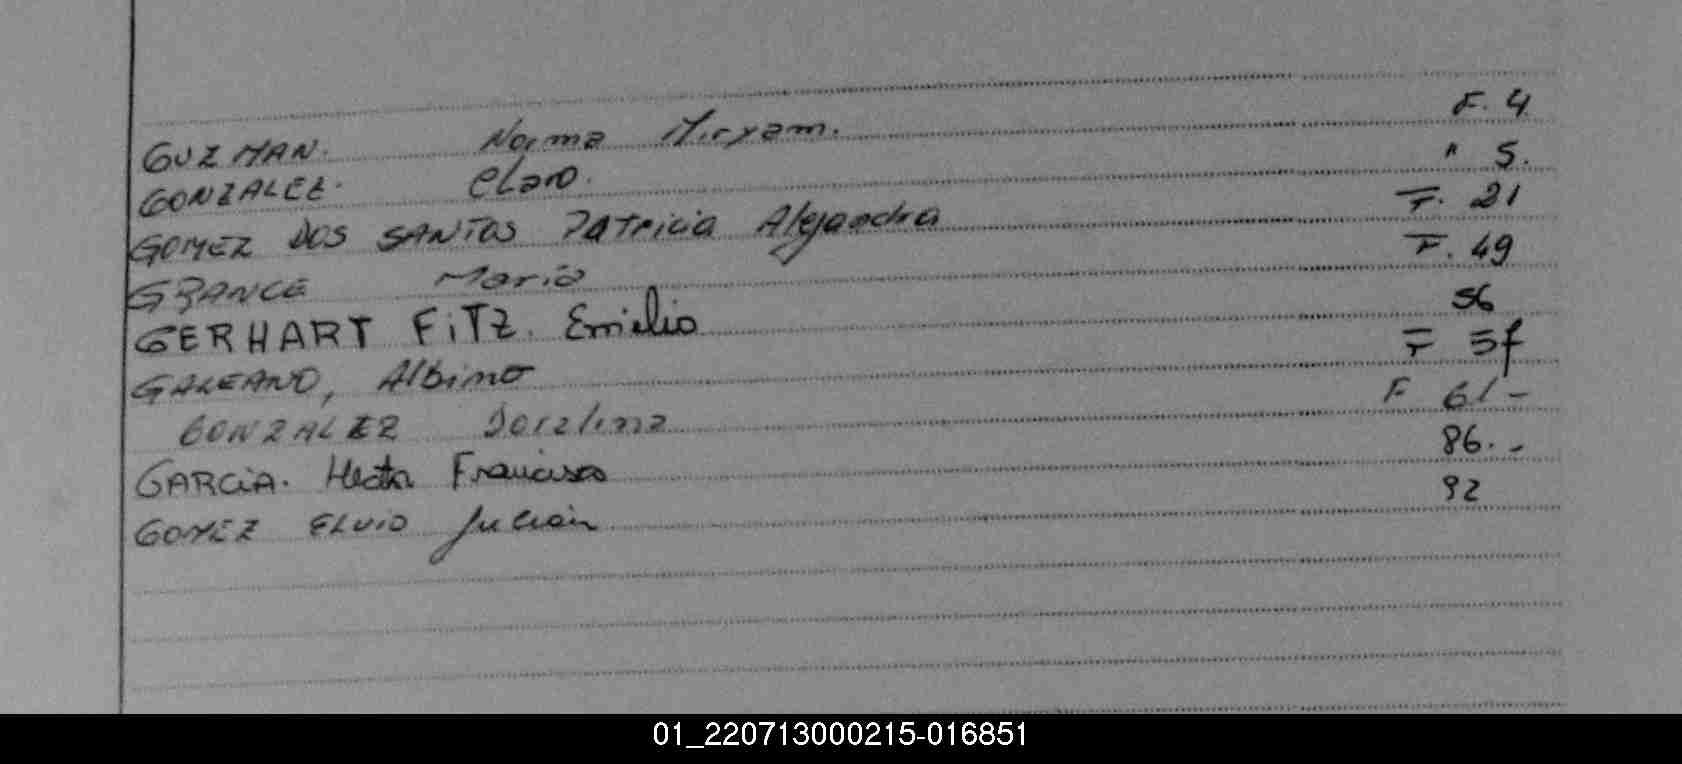 GUZMAN. Norma Miryam. F. 4
GONZALEZ. Claro. " 5.
GOMEZ DOS SANTOS Patricia Alejandra F. 21
GRANCE Maria F. 49
GERHART FITZ. Emilio 56
GALEANO, Albino F
GONZALEZ F 61-
GARCIA. Hector Francisco 86.-
GOMEZ ELVIO Julián 92
01_220713000215-016851